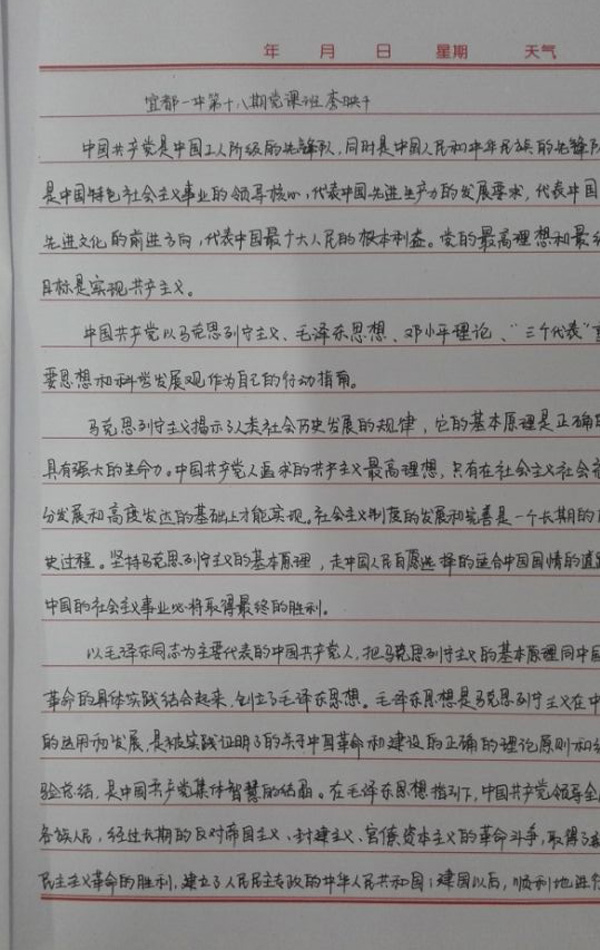 年 月 日 星期 天气
宜都一中第十八期党课班 李映千
中国共产党是中国工人阶级的先锋队,同时是中国人民和中华民族的先锋队
是中国特色社会主义事业的领导核心,代表中国先进生产力的发展要求,代表中国
先进文化的前进方向,代表中国最广大人民的根本利益。党的最高理想和最终
目标是实现共产主义。
中国共产党以马克思列宁主义、毛泽东思想、邓小平理论、“三个代表”重
要思想和科学发展观作为自己的行动指南。
马克思列宁主义揭示了人类社会历史发展的规律,它的基本原理是正确的
具有强大的生命力。中国共产党人追求的共产主义最高理想,只有在社会主义社会充
分发展和高度发达的基础上才能实现。社会主义制度的发展和完善是一个长期的历
史过程。坚持马克思列宁主义的基本原理,走中国人民自愿选择的适合中国国情的道路
中国的社会主义事业必将取得最终的胜利。
以毛泽东同志为主要代表的中国共产党人,把马克思列宁主义的基本原理同中国
革命的具体实践结合起来,创立了毛泽东思想。毛泽东思想是马克思列宁主义在中
的运用和发展,是被实践证明了的关于中国革命和建设的正确的理论原则和经
验总结,是中国共产党集体智慧的结晶。在毛泽东思想指引下,中国共产党领导全
各族人民,经过长期的反对帝国主义、封建主义、官僚资本主义的革命斗争,取得了
民主主义革命的胜利,建立了人民民主专政的中华人民共和国;建国以后,顺利地进行